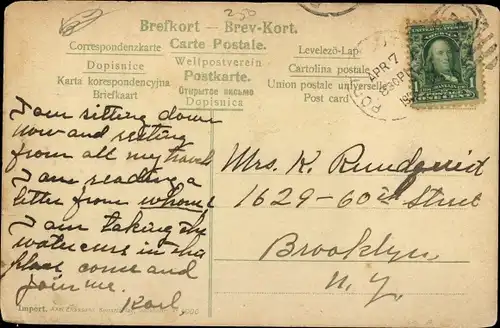 250
Brefkort — Brev-Kort.
Correspondenzkarte Carte Postale. Levelező-Lap
Dopisnice Weltpostverein Cartolina postale
Karta korespondencyjna Postkarte. Union postale universelle
Briefkaart Открытое письмо Post card
Dopisnica
APR 7
830P
1
I am sitting down
now and resting
from all my travel
I am reading a
letter from whom?
I am taking the
water cure in this
place come and
join me.
Karl
Mrs. K. Rundquist
1629-60th Street
Brooklyn
N.Y.
Import.